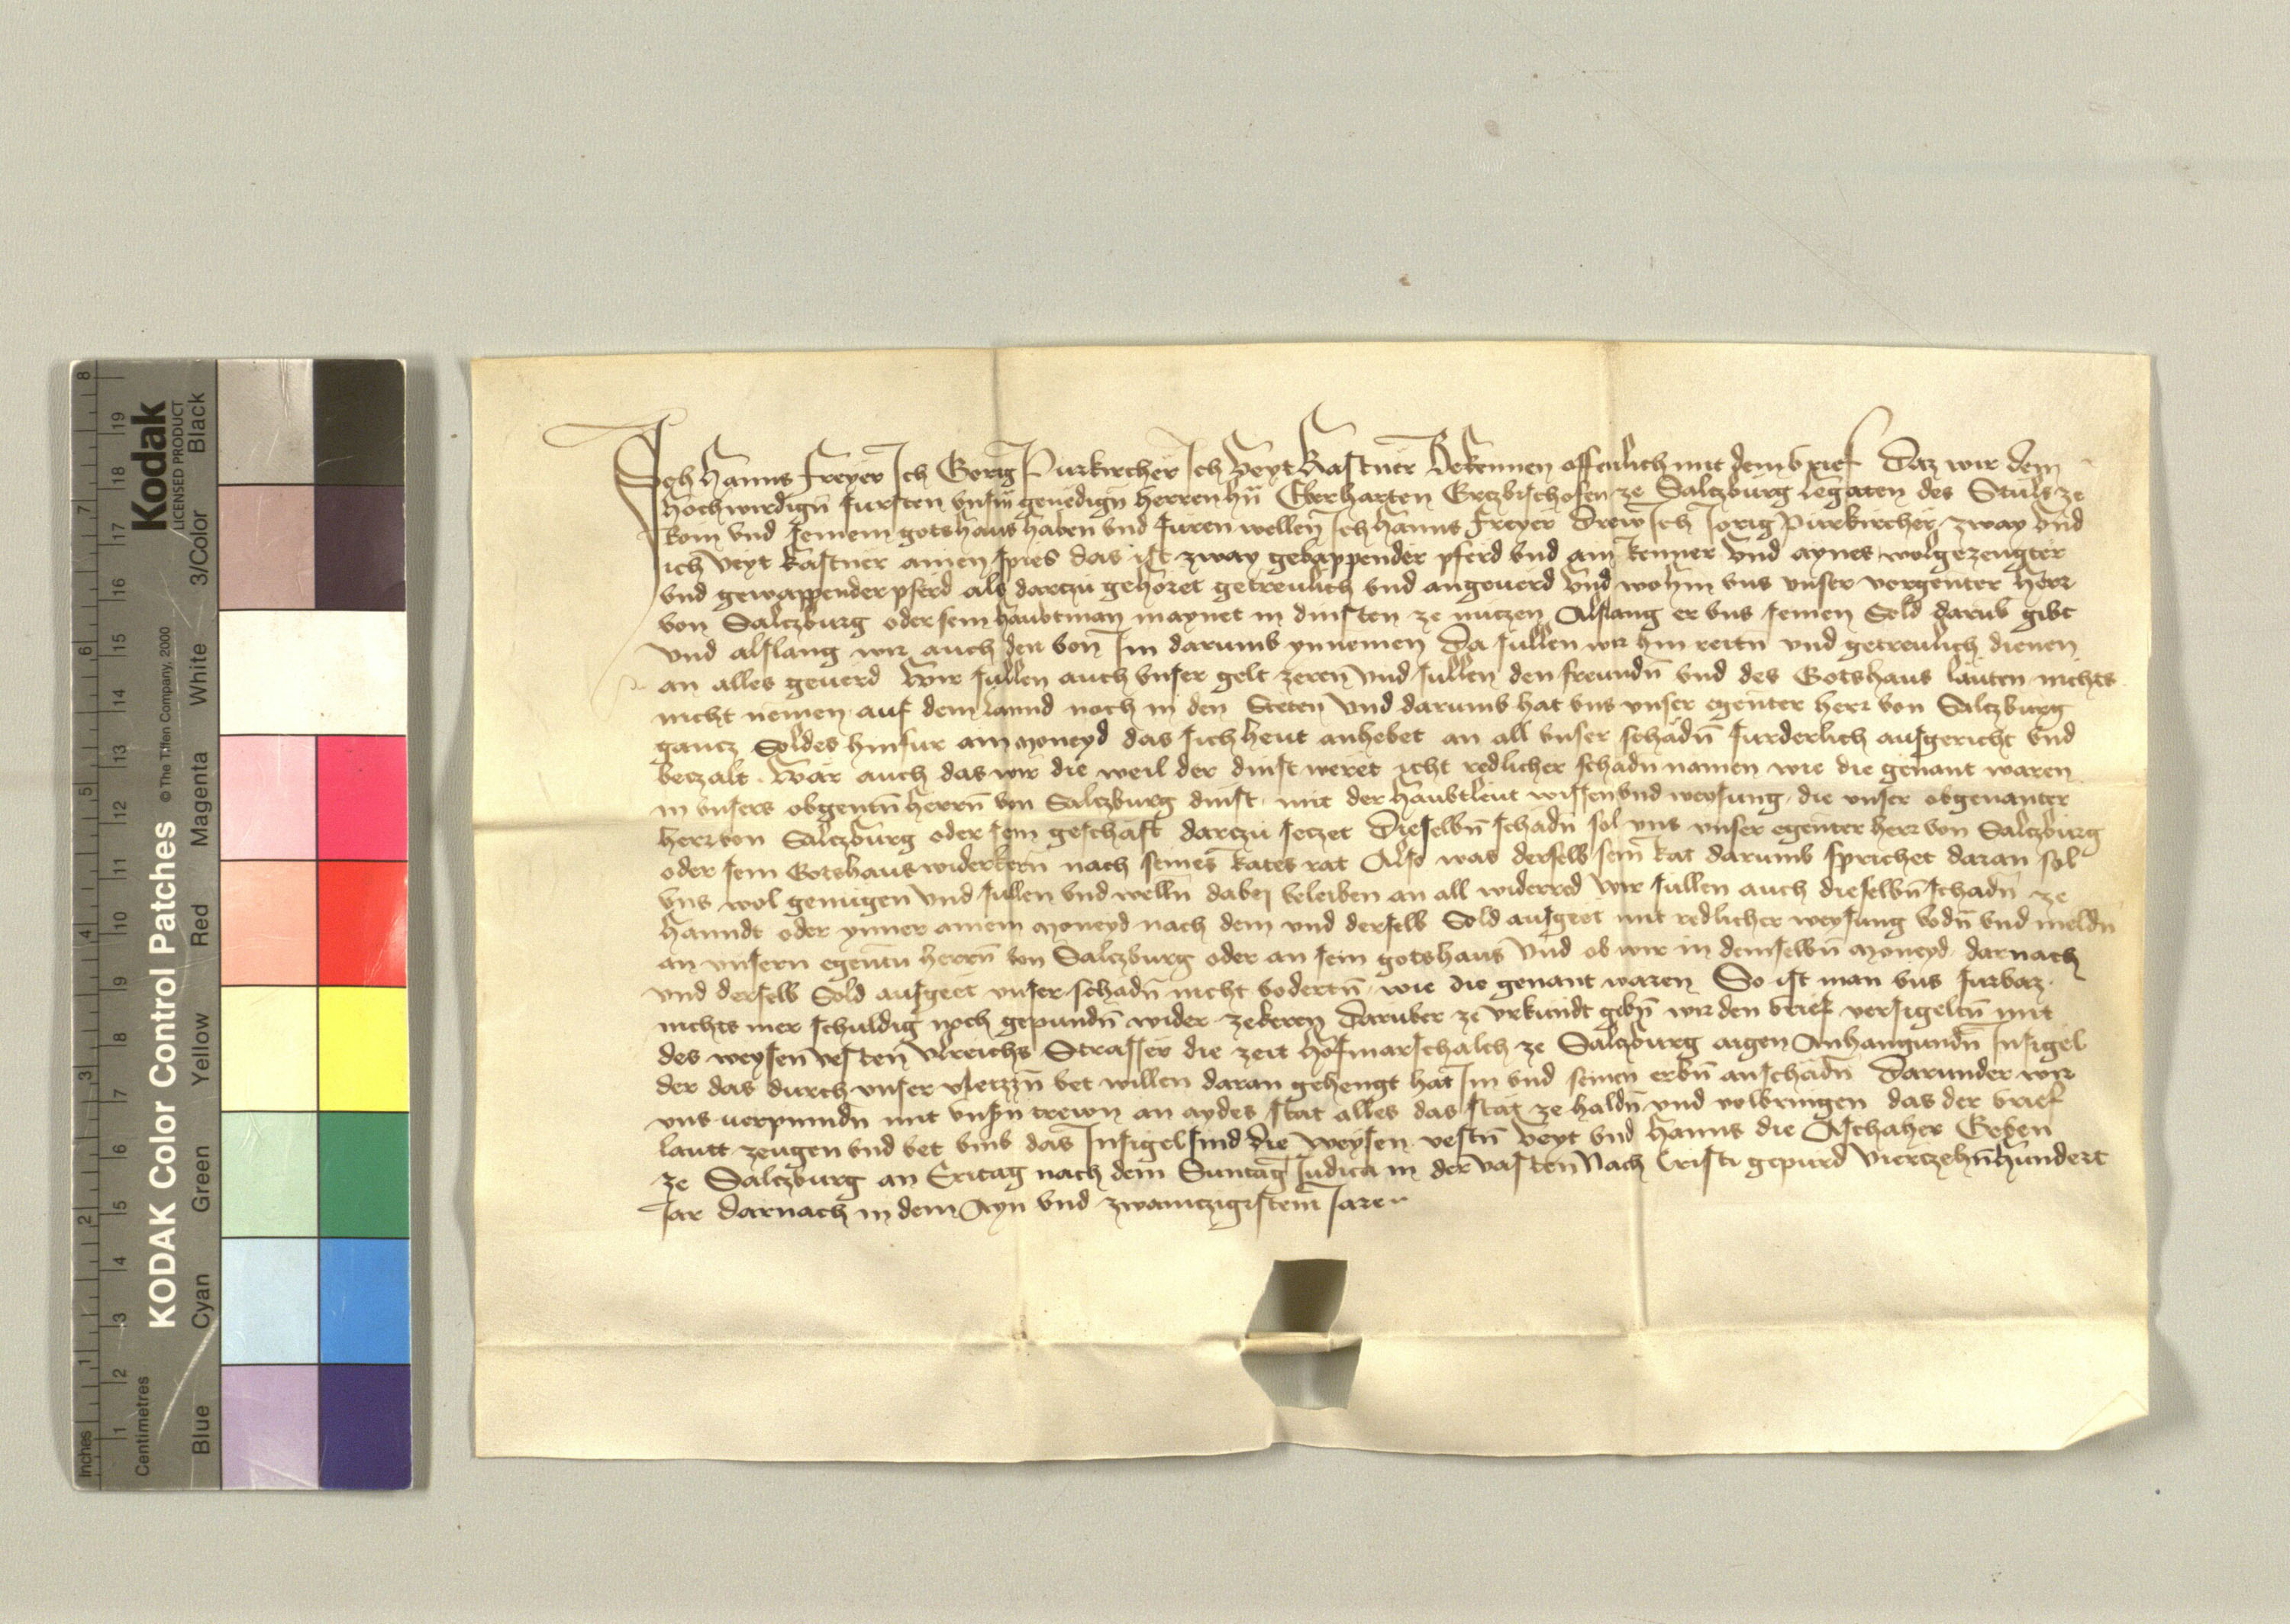 Ich Hanns Freyer Ich Gorig Purkircher Ich Veyt Kastner Bekennen offenlich mit dem brief Daz wir dem
Hochwirdign fursten unsm genedign herren hn Eberharten Ertzbischofen ze Saltzburg legaten des Stuls ze
Rom und seinem gotshaus haben und furen wellen Ich Hanns Freyer drew Ich Jorig Purkircher zway und
ich Veyt Kastner ainen spies das ist zway gebappender pferd und ain Renner und aynes wolgezeugter
und gewappender pferd als dartzu gehoret getreulich und angeverd und wohin uns unser vorgenter herr
von Saltzburg oder sein haubtman maynet in dinsten ze nutzen Alslang er uns seinen Sold darub gibt
und alslang wir auch den von Im darumb ynnemen Da sullen wir hin reitn und getreulich dienen
an alles geverd Wir sullen auch unser gelt zeren und sullen den freundn und des Gotshaus lauten nichts
nicht nemen auf dem lannd noch in den Steten und darumb hat uns unser egenter herr von Saltzburg
gantz Soldes hinfur ain moneyd das sich heut anhebet an all unser schadn furderlich ausgericht und
betzalt. Wär auch das wir die weil der dinst weret icht redlicher schadn namen wie die genant waren
in unsers obgentn herrn von Saltzburg dinst mit der haubtleut wissen und weysung die unser obgenanter
herr von Saltzburg oder sein geschäft dartzu setzet Dieselbn schadn sol uns unser egenter herr von Saltzburg
oder sein Gotshaus widerkern nach seines Rates rat Also was derselb sein Rat darumb sprichet daran sol
uns wol genugen und sullen und welln dabej beleiben an all widerred Wir sullen auch dieselbn schadn ze
hanndt oder ynner ainem moneyd nach dem und derselb Sold ausgeet mit redlicher weysung vodn und meldn
an unsern egentn herrn von Saltzburg oder an sein gotshaus Und ob wir in demselbn moneyd darnach
und derselb Sold ausgeet unser schadn nicht vodertn wie die genant waren So ist man uns furbaz
nichts mer schuldig noch gepundn wider zekeren Daruber ze urkundt gebn wir den brief versigeltn mit
des weysen vesten Ulreichs Strasser die zeit hofmarschalch ze Saltzburg aigen Anhangundn Insigel
der das durch unser vleizzn bet willen daran gehengt hat Im und seinen erbn anschadn Darunder wir
uns verpinndn mit unsn trewn an aydes stat alles das stät ze haldn und volbringen das der brief
lautt zeugen und bet umb das Insigel sind die weysen vestn Veyt und Hanns die Aschaher Geben
ze Saltzburg an Eritag nach dem Suntag Judica in der vasten Nach Cristi gepurd viertzehnhundert
Jar darnach in dem Ayn und zwaintzigistem Jare
KODAK Color Control Patches
© The Tiffen Company, 2000
Kodak
LICENSED PRODUCT
Inches
1 2 3 4 5 6 7 8
Centimetres
1 2 3 4 5 6 7 8 9 10 11 12 13 14 15 16 17 18 19
Blue Cyan Green Yellow Red Magenta White 3/Color Black